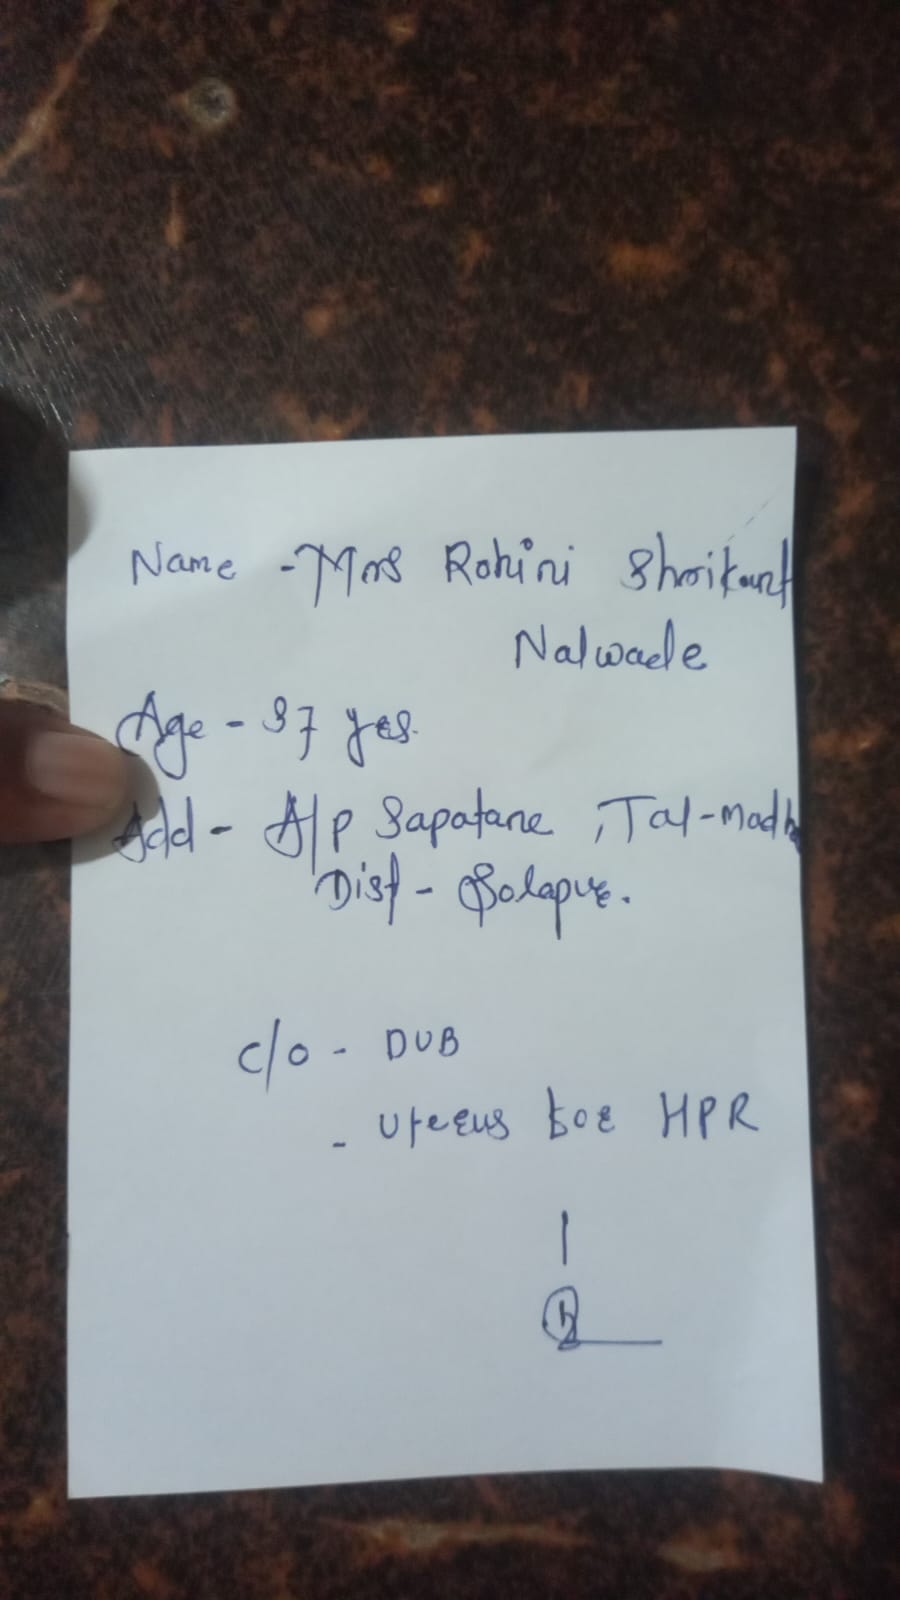 Name - Mrs Rohini Shrikant
Nalwade
Age - 37 yrs.
Add - A/p Sapatane, Tal-madha
Dist - Solapur.
c/o - DUB
- Uterus for HPR